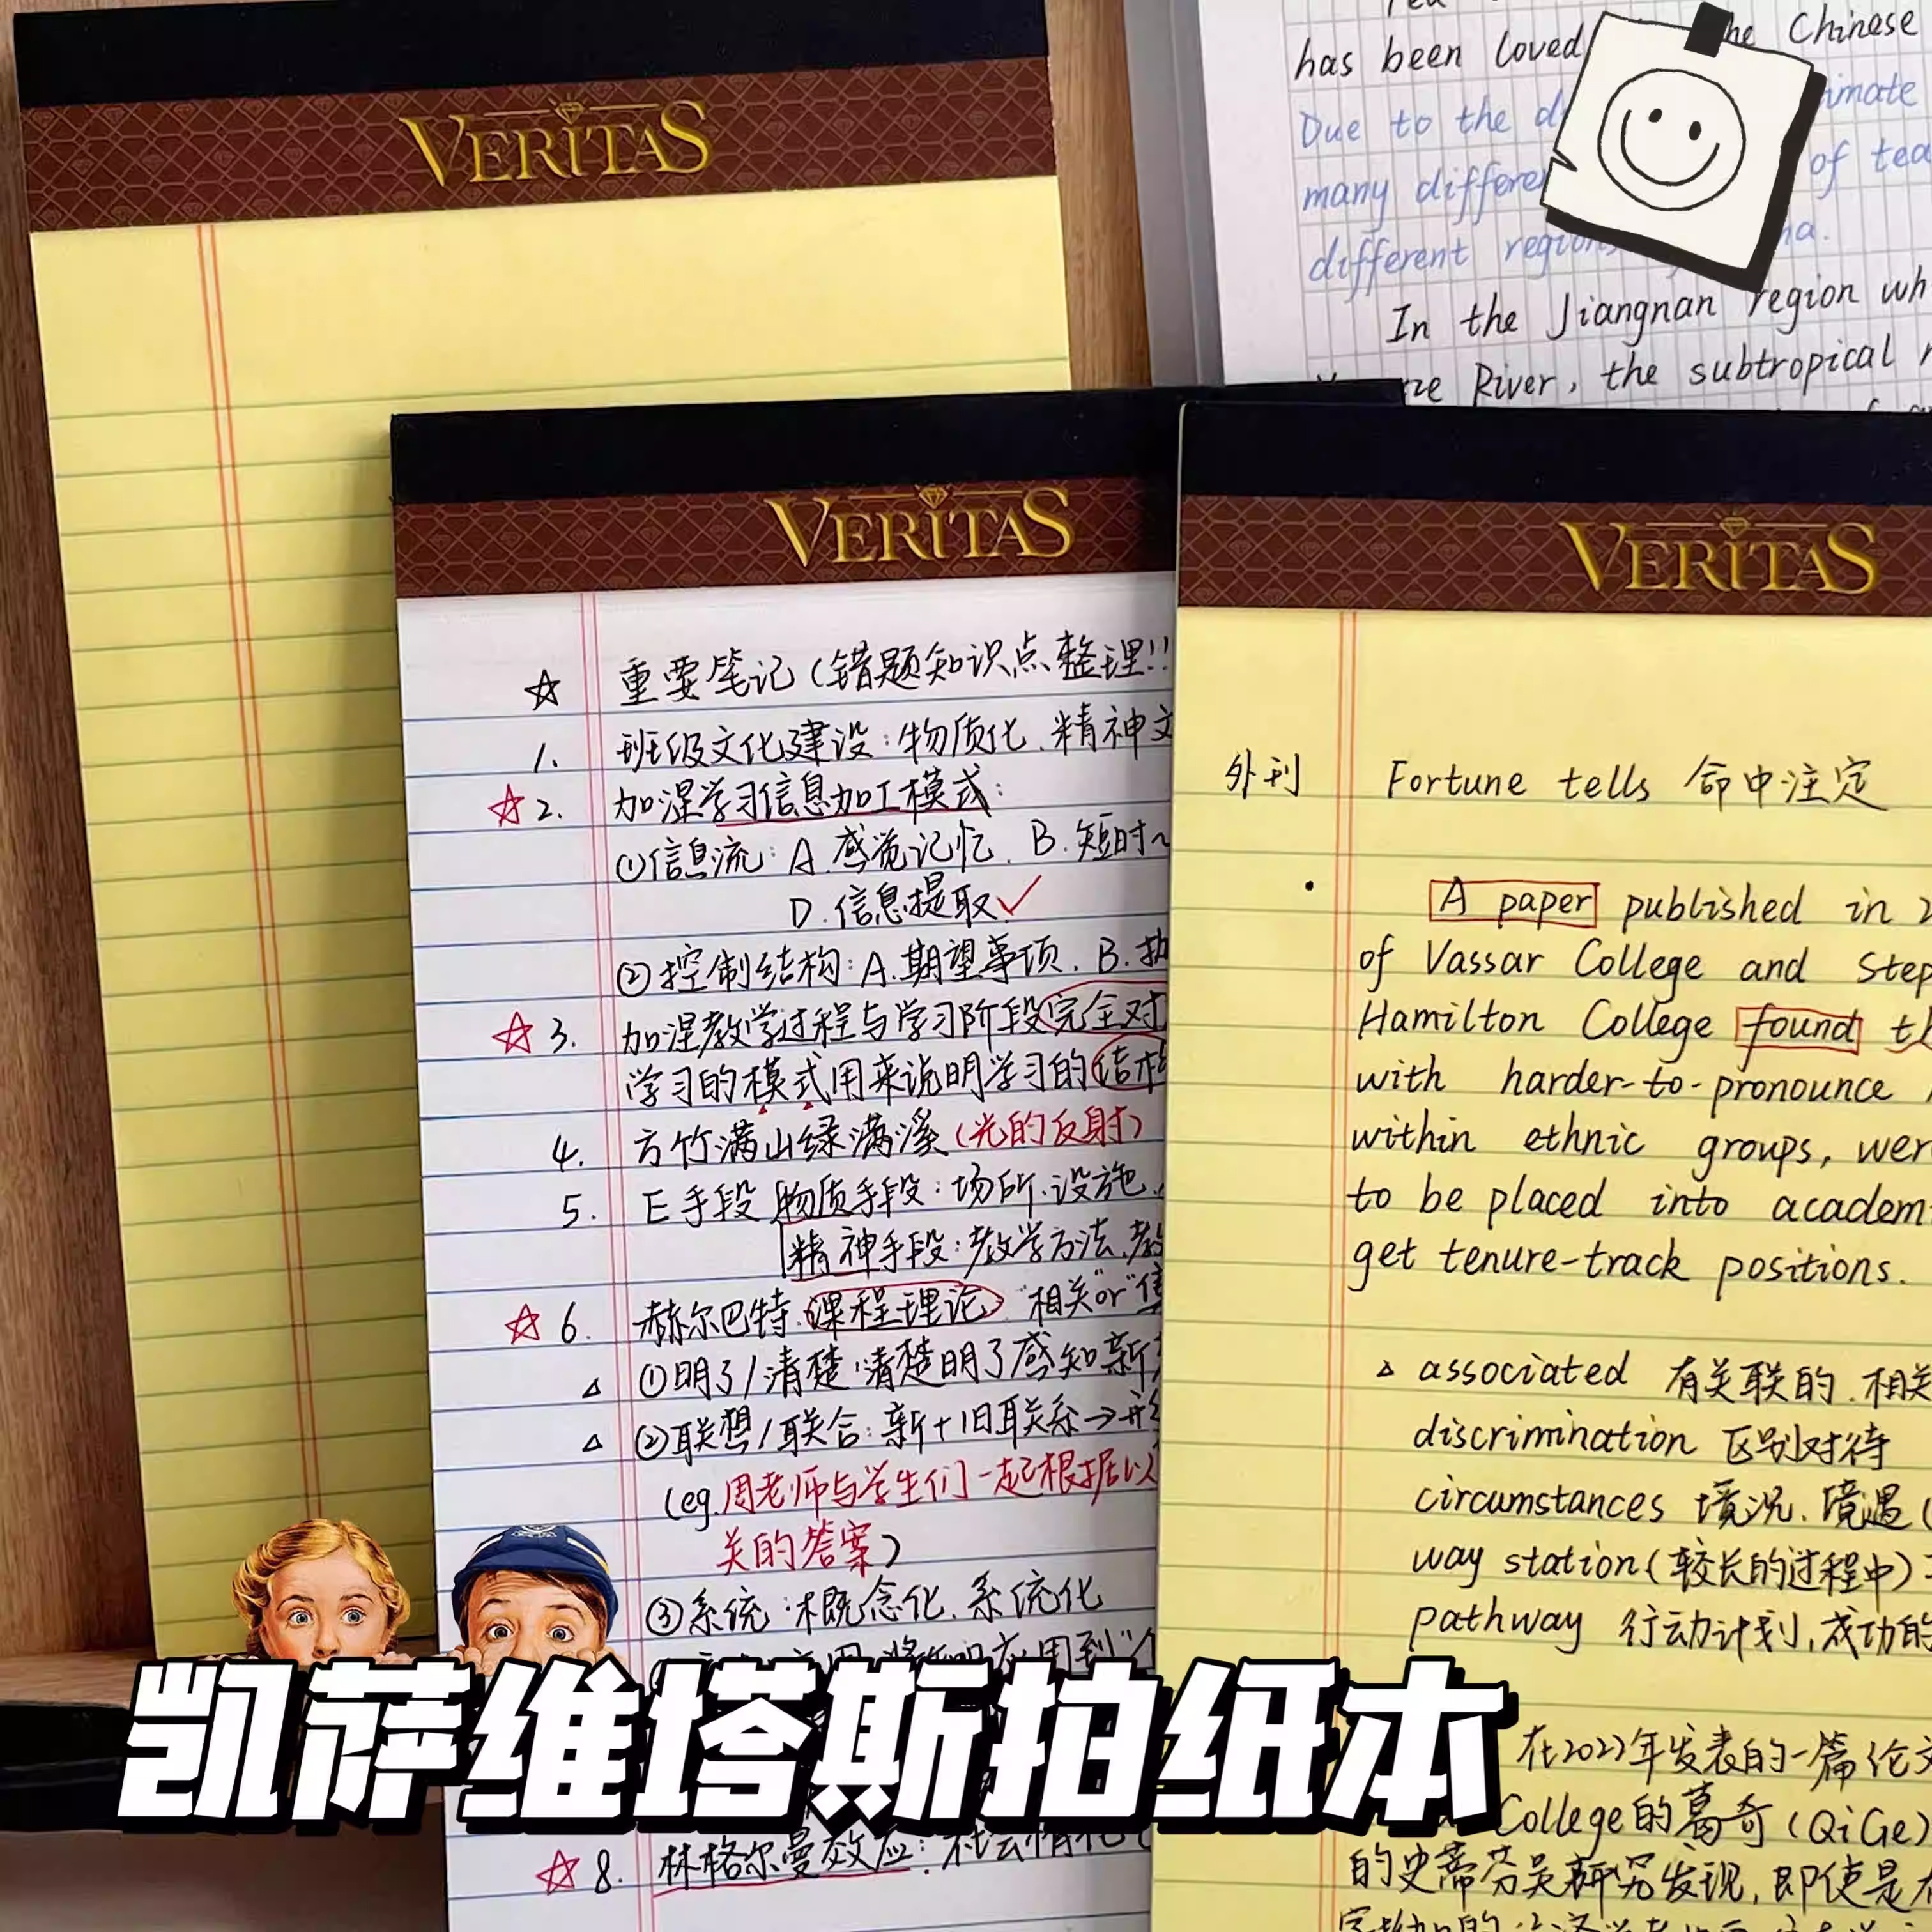 VERITAS
has been loved
he Chinese
Due to the d
imate
many differen
of tea
different regions
na.
In the Jiangnan region wh
River, the subtropical
VERITAS
☆ 重要笔记(错题知识点整理!!
1. 班级文化建设:物质化、精神文
☆2. 加涅学习信息加工模式:
①信息流:A.感觉记忆、B.短时~
D.信息提取✓
②控制结构:A.期望事项、B.执
☆3. 加涅教学过程与学习阶段完全对
学习的模式用来说明学习的结构
4. 方竹满山绿满溪(光的反射)
5. E手段 物质手段:场所、设施、
精神手段:教学方法、教
☆6. 赫尔巴特、课程理论 "相关"or"集
△ ①明了/清楚:清楚明了感知新
△ ②联想/联合:新+旧联系→形
(eg.周老师与学生们一起根据以
关的答案)
③系统:概念化、系统化
☆8. 林格尔曼效应:社会惰化
VERITAS
外刊 Fortune tells 命中注定
A paper published in 2
of Vassar College and Step
Hamilton College found th
with harder-to-pronounce
within ethnic groups, wer
to be placed into academ
get tenure-track positions.
△ associated 有关联的、相关
discrimination 区别对待
circumstances 境况、境遇(
way station(较长的过程中)
pathway 行动计划,成功的
在2022年发表的一篇论文
College的葛奇(QiGe)
的史蒂芬吴研究发现,即使是在
凯萨维塔斯拍纸本